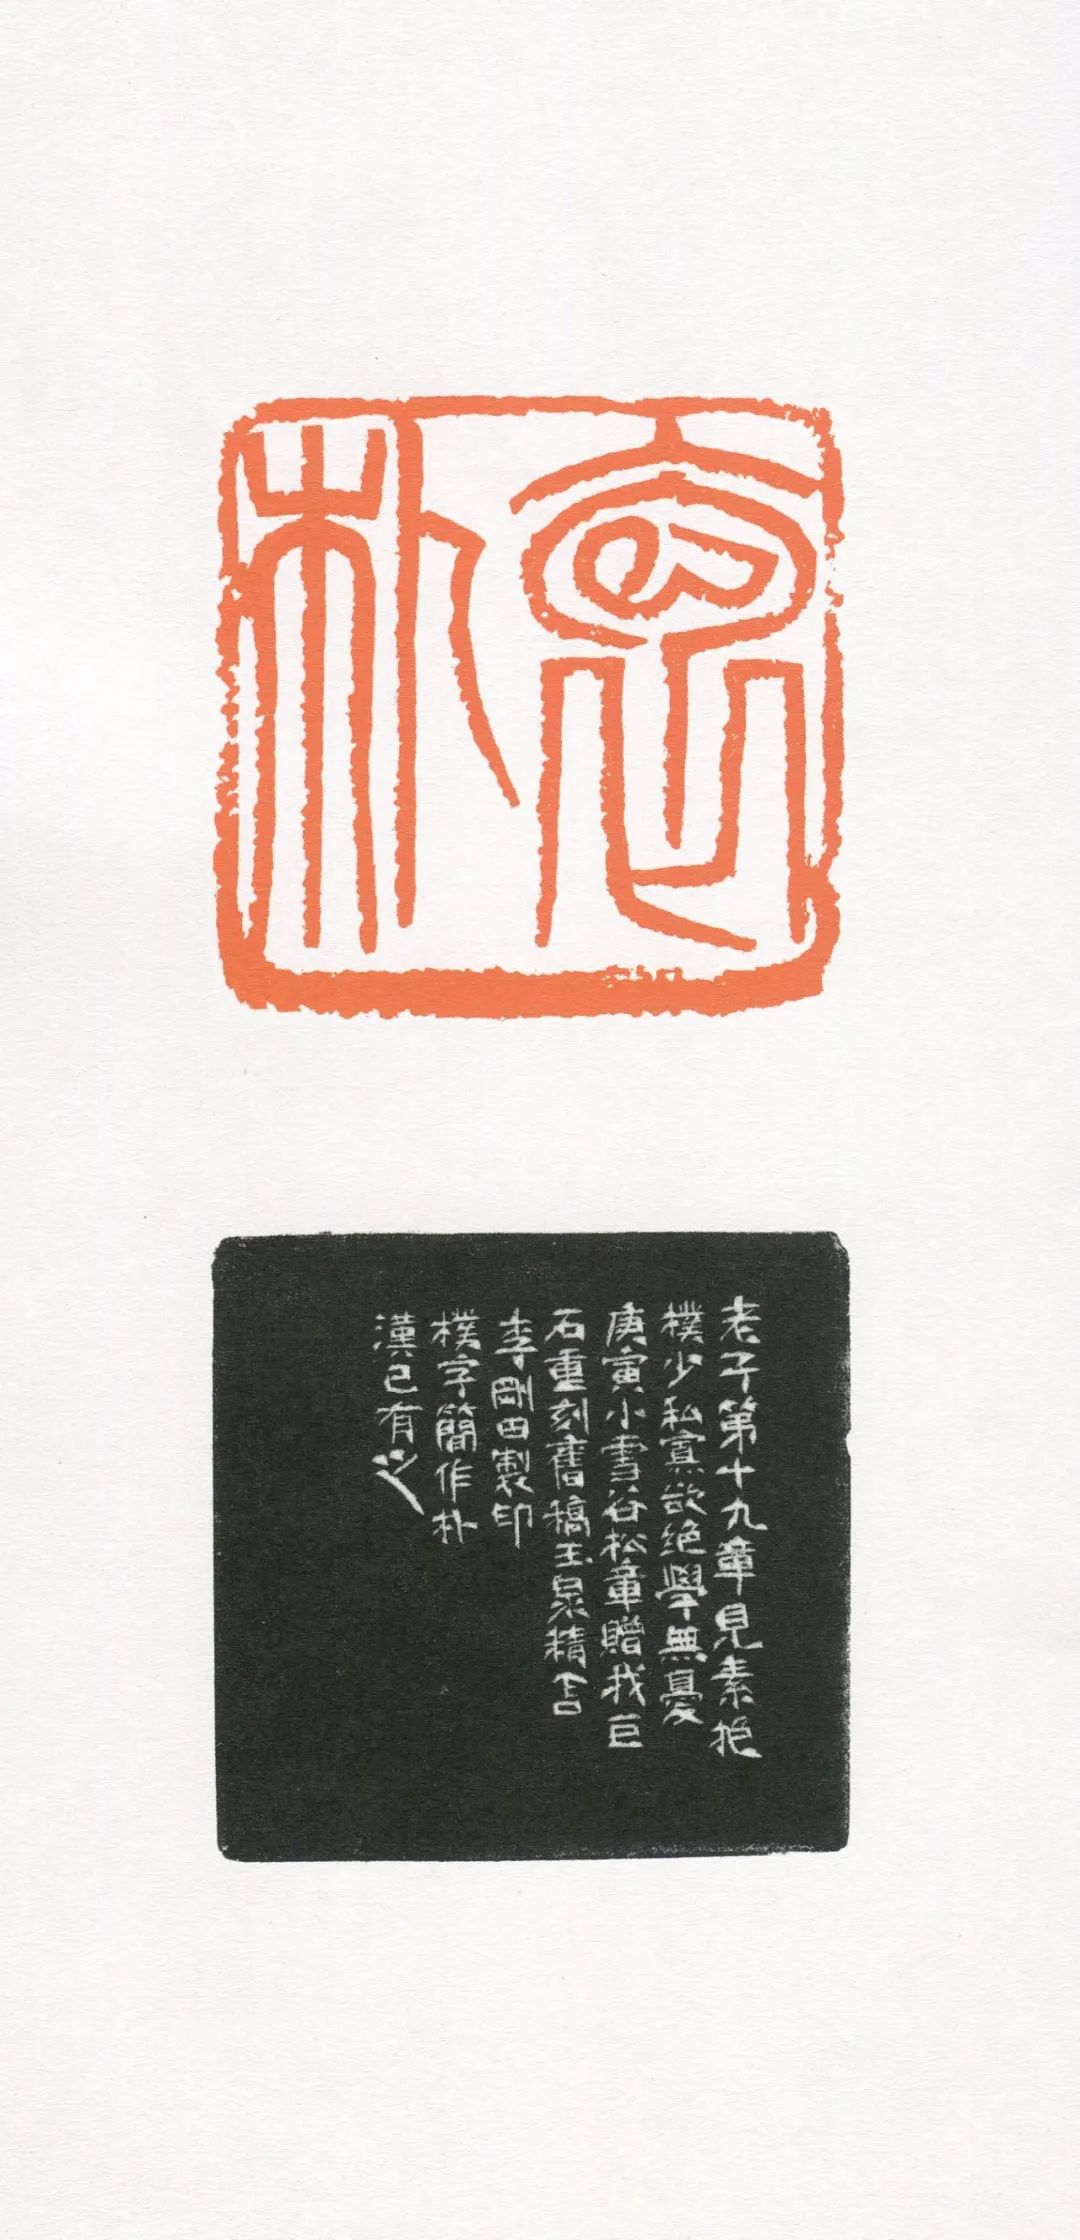 袌朴
老子第十九章見素抱
樸少私寡欲絶學無憂
庚寅小雪谷松章贈我巨
石重刻舊稿玉泉精舍
李剛田製印
樸字簡作朴
漢已有之